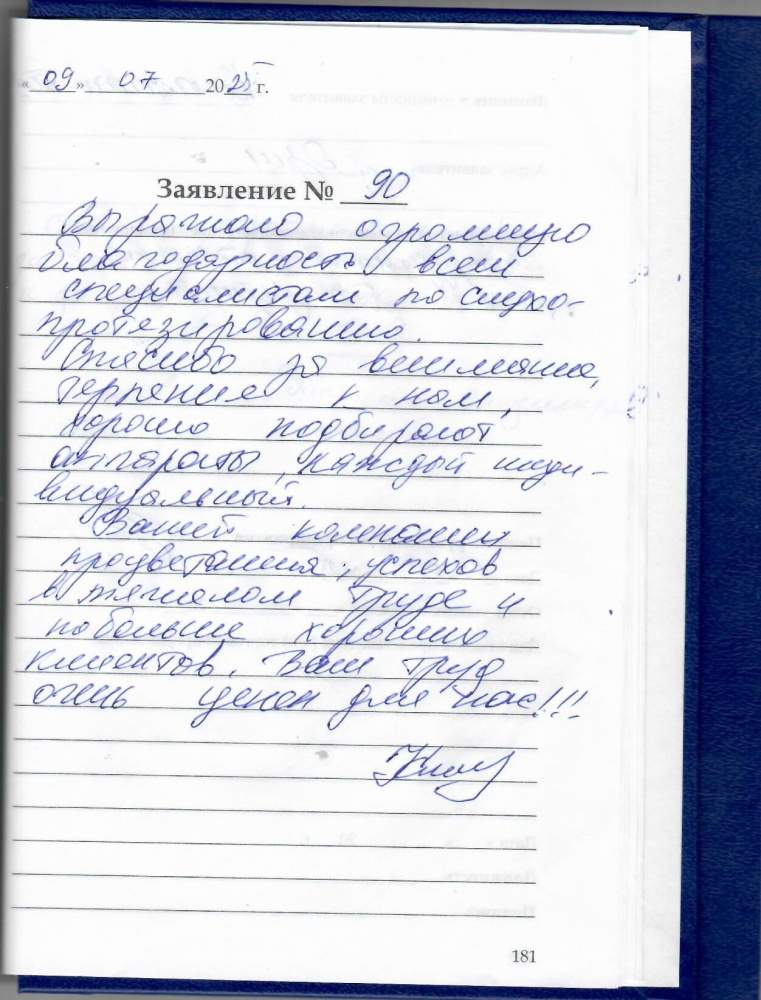 «09» 07 2025 г.
Заявление № 90
Выражаю огромную
благодарность всем
специалистам по слухо-
протезированию.
Спасибо за внимание,
терпение к нам,
хорошо подбирают
аппараты, каждый инди-
видуальный.
Вашей компании
процветания, успехов
в тяжелом труде и
побольше хороших
клиентов. Ваш труд
очень ценен для нас!!!
181